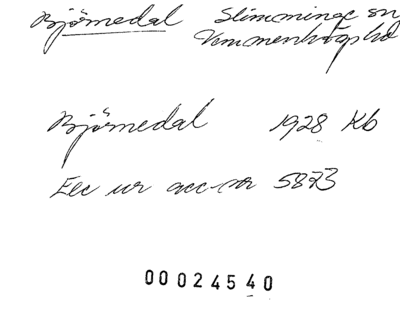 Björnedal Slimminge sn
Vemmenhögs hd
Björnedal 1928 Kb
Exc ur acc-nr 5873
00024540